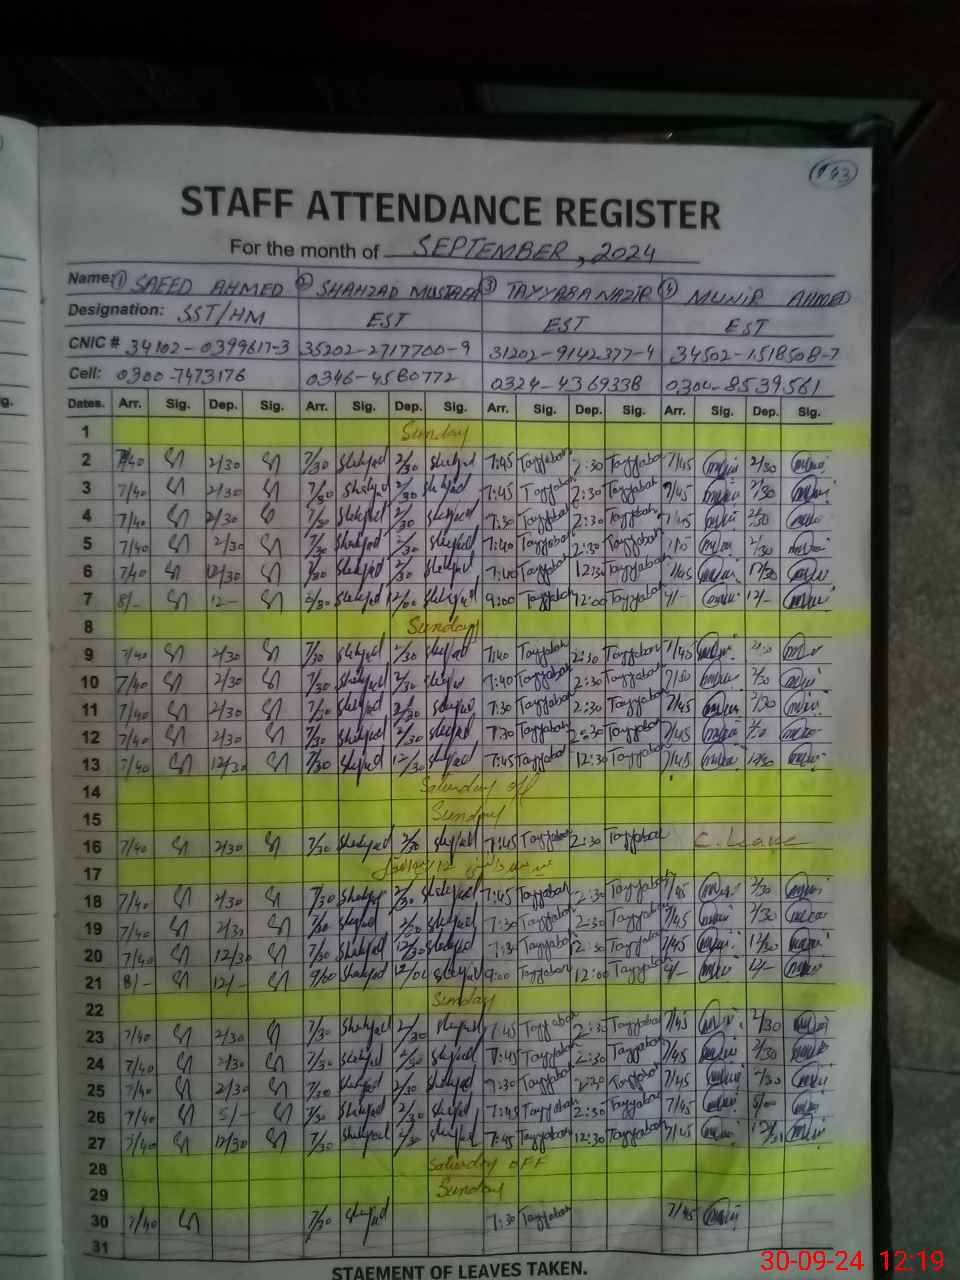 143
STAFF ATTENDANCE REGISTER
For the month of SEPTEMBER, 2024
Name: ① SAEED AHMED ② SHAHZAD MUSTAFA ③ TAYYABA NAZIR ④ MUNIR AHMED
Designation: SST/HM EST EST EST
CNIC # 34102-0399617-3 35202-2717700-9 31202-9142377-4 34502-1518508-7
Cell: 0300-7473176 0346-4580772 0324-4369338 0300-8539561
Dates. Arr. Sig. Dep. Sig. Arr. Sig. Dep. Sig. Arr. Sig. Dep. Sig. Arr. Sig. Dep. Sig.
1 Sunday
2 7/40 2/30 7/30 Shahzad 2/30 Shahzad 7:45 Tayyabah 2:30 Tayyabah 7/45 2/30
3 7/40 2/30 7/30 Shahzad 2/30 Shahzad 7:45 Tayyabah 2:30 Tayyabah 7/45 2/30
4 7/40 2/30 7/30 Shahzad 2/30 Shahzad 7:30 Tayyabah 2:30 Tayyabah 7/45 2/30
5 7/40 2/30 7/30 Shahzad 2/30 Shahzad 7:40 Tayyabah 2:30 Tayyabah 2/30
6 7/40 12/30 7/30 Shahzad 2/30 Shahzad 7:40 Tayyabah 12:30 Tayyabah 7/45 12/30
7 8/- 12- Shahzad 12/00 Shahzad 9:00 Tayyabah 12:00 Tayyabah 9/- 12/-
8 Sunday
9 7/40 2/30 7/30 Shahzad 2/30 Shahzad 7:40 Tayyabah 2:30 Tayyabah 7/45
10 7/40 2/30 7/30 Shahzad 2/30 Shahzad 7:40 Tayyabah 2:30 Tayyabah 2/30
11 7/40 2/30 7/30 Shahzad 2/30 Shahzad 7:30 Tayyabah 2:30 Tayyabah 7/45 2/30
12 7/40 2/30 7/30 Shahzad 2/30 Shahzad 7:30 Tayyabah 2:30 Tayyabah 7/45
13 7/40 12/30 7/30 Shahzad 12/30 Shahzad 7:45 Tayyabah 12:30 Tayyabah 7/45 12/30
14 Saturday off
15 Sunday
16 7/40 2/30 7/30 Shahzad 2/30 Shahzad 7:45 Tayyabah 2:30 Tayyabah C. Leave
17
18 7/40 2/30 7/30 Shahzad 2/30 Shahzad 7:45 Tayyabah 2:30 Tayyabah 7/45 2/30
19 7/40 2/30 7/30 Shahzad 2/30 Shahzad 7:30 Tayyabah 2:30 Tayyabah 7/45 2/30
20 7/40 12/30 7/30 Shahzad 12/30 Shahzad 7:30 Tayyabah 12:30 Tayyabah 7/45 12/30
21 8/- 12/- 9/00 Shahzad 12/00 Shahzad 9:00 Tayyabah 12:00 Tayyabah 9/- 12/-
22 Sunday
23 7/40 2/30 7/30 Shahzad 2/30 Shahzad 7:45 Tayyabah 2:30 Tayyabah 7/45 2/30
24 7/40 2/30 7/30 Shahzad 2/30 Shahzad 7:45 Tayyabah 2:30 Tayyabah 7/45 2/30
25 7/40 2/30 7/30 Shahzad 2/30 Shahzad 7:30 Tayyabah 2:30 Tayyabah 7/45 2/30
26 7/40 5/- 7/30 Shahzad 2/30 Shahzad 7:45 Tayyabah 2:30 Tayyabah 7/45 5/00
27 7/40 12/30 7/30 Shahzad Shahzad 7:45 Tayyabah 12:30 Tayyabah 7/45
28 Saturday OFF
29 Sunday
30 7/40 7/30 Shahzad 7:30 Tayyabah 7/45
31
STAEMENT OF LEAVES TAKEN.
30-09-24 12:19